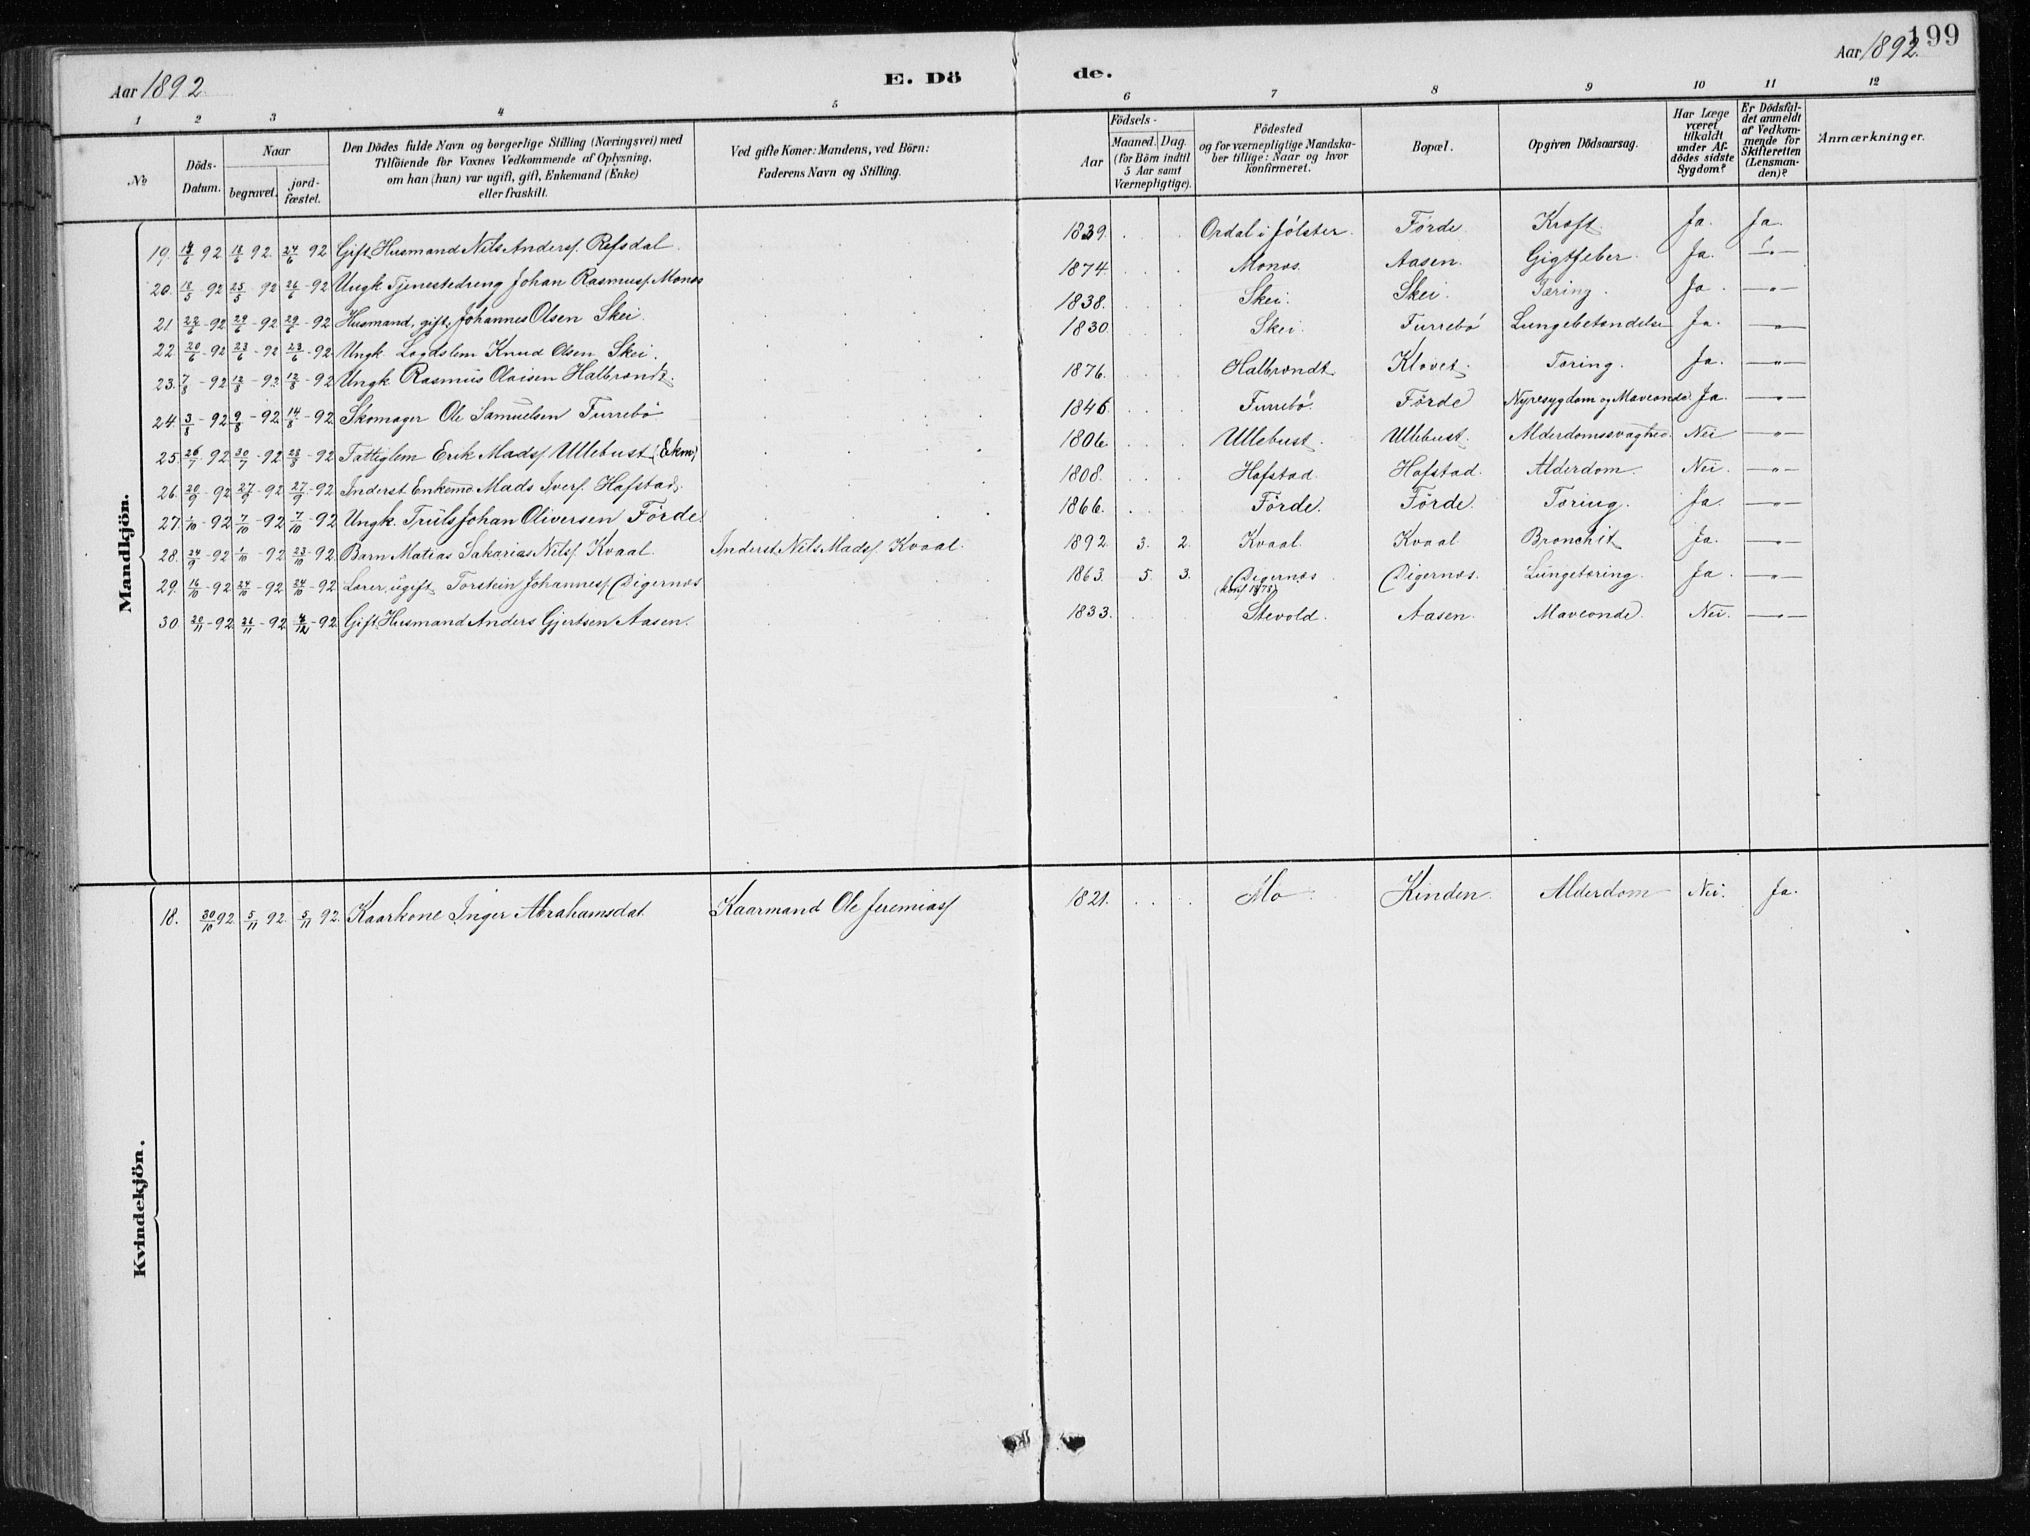 Aar 1892. E. Dö de. Aar 1892. 199
1 2 3 4 5 6 7 8 9 10 11 12
No. Döds-Datum. Naar begravet. jordfæstet. Den Dödes fulde Navn og borgerlige Stilling (Næringsvei) med Tilföiende for Voxnes Vedkommende af Oplysning, om han (hun) var ugift, gift, Enkemand (Enke) eller fraskilt. Ved gifte Koner: Mandens, ved Börn: Faderens Navn og Stilling. Födsels- Aar Maaned. Dag. (for Börn indtil 5 Aar samt Værnepligtige). Födested og for værnepligtige Mandskaber tillige: Naar og hvor konfirmeret. Bopæl. Opgiven Dödsaarsag. Har Læge været tilkaldt under Afdödes sidste Sygdom? Er Dödsfaldet anmeldt af Vedkommende for Skifteretten (Lensmanden)? Anmærkninger.
Mandkjön.
19. 92 18/6 92. 24/6 92 Gift Husmand Nils Anders. Refsdal. 1839 Ordal i Jölster. Förde. Kræft. Ja. Ja.
20. 18/5 - 92 25/5 - 92 26/6 - 92 Ungk. Tjenestedreng Johan Rasmus. Monæs 1874. Monæs. Aasen. Gigtfeber. Ja. —„—
21 22/6 - 92 29/6 - 92 29/6 - 92 Husmand, gift, Johannes Olsen Skei. 1838. Skei. Skei. Tæring. Ja. —„—
22 20/6 - 92 23/6 - 92 23/6 - 92 Ungk. Lægdslem Knud Olsen Skei. 1830. Skei. Furrebö Lungebetændelse Ja. —„—
23. 7/8 - 92 12/8 - 92 12/8 - 92 Ungk. Rasmus Olaisen Halbrændt. 1876. Halbrændt Klovet. Tæring. Ja. —„—
24. 3/8 - 92 9/8 - 92 14/8 - 92 Skomager Ole Samuelsen Furrebö 1846. Furrebö. Förde Nyresygdom og Maveonde. Ja. —„—
25. 26/7 92 30/7 - 92 28/8 - 92 Fattiglem Erik Mads. Ullebust (Ekm) 1806. Ullebust. Ullebust. Alderdomssvaghed. Nei —„—
26. 20/9 - 92 27/9 - 92 27/9 - 92 Inderst Enkemd Mads Ivers. Hafstad. 1808. Hafstad. Hafstad. Alderdom. Nei. —„—
27. 1/10 - 92 7/10 - 92 7/10 - 92 Ungk. Truls Johan Oliversen Förde 1866. Förde. Förde. Tæring. Ja. —„—
28. 24/9 - 92 1/10 - 92 23/10 - 92 Barn Matias Sakarias Nils. Kvaal. Inderst Nils Mads. Kvaal. 1892. 3. 2. Kvaal. Kvaal Bronchit Ja. —„—
29. 16/10 - 92 24/10 - 92 24/10 - 92 Lærer, ugift Torstein Johannes. Digernæs 1863. 5. 3. Digernæs (konf. 1878) Digernæs. Lungetæring. Ja. —„—
30. 20/11 - 92 26/11 - 92 4/12 - 92. Gift Husmand Anders Gjertsen Aasen. 1833. Stevold. Aasen. Maveonde. Nei. —„—
Kvindekjön.
18. 30/10 92. 5/11 92. 5/11 92. Kaarkone Inger Abrahamsdat. Kaarmand Ole Jeremias. 1821. Mo Kinden. Alderdom Nei. Ja.